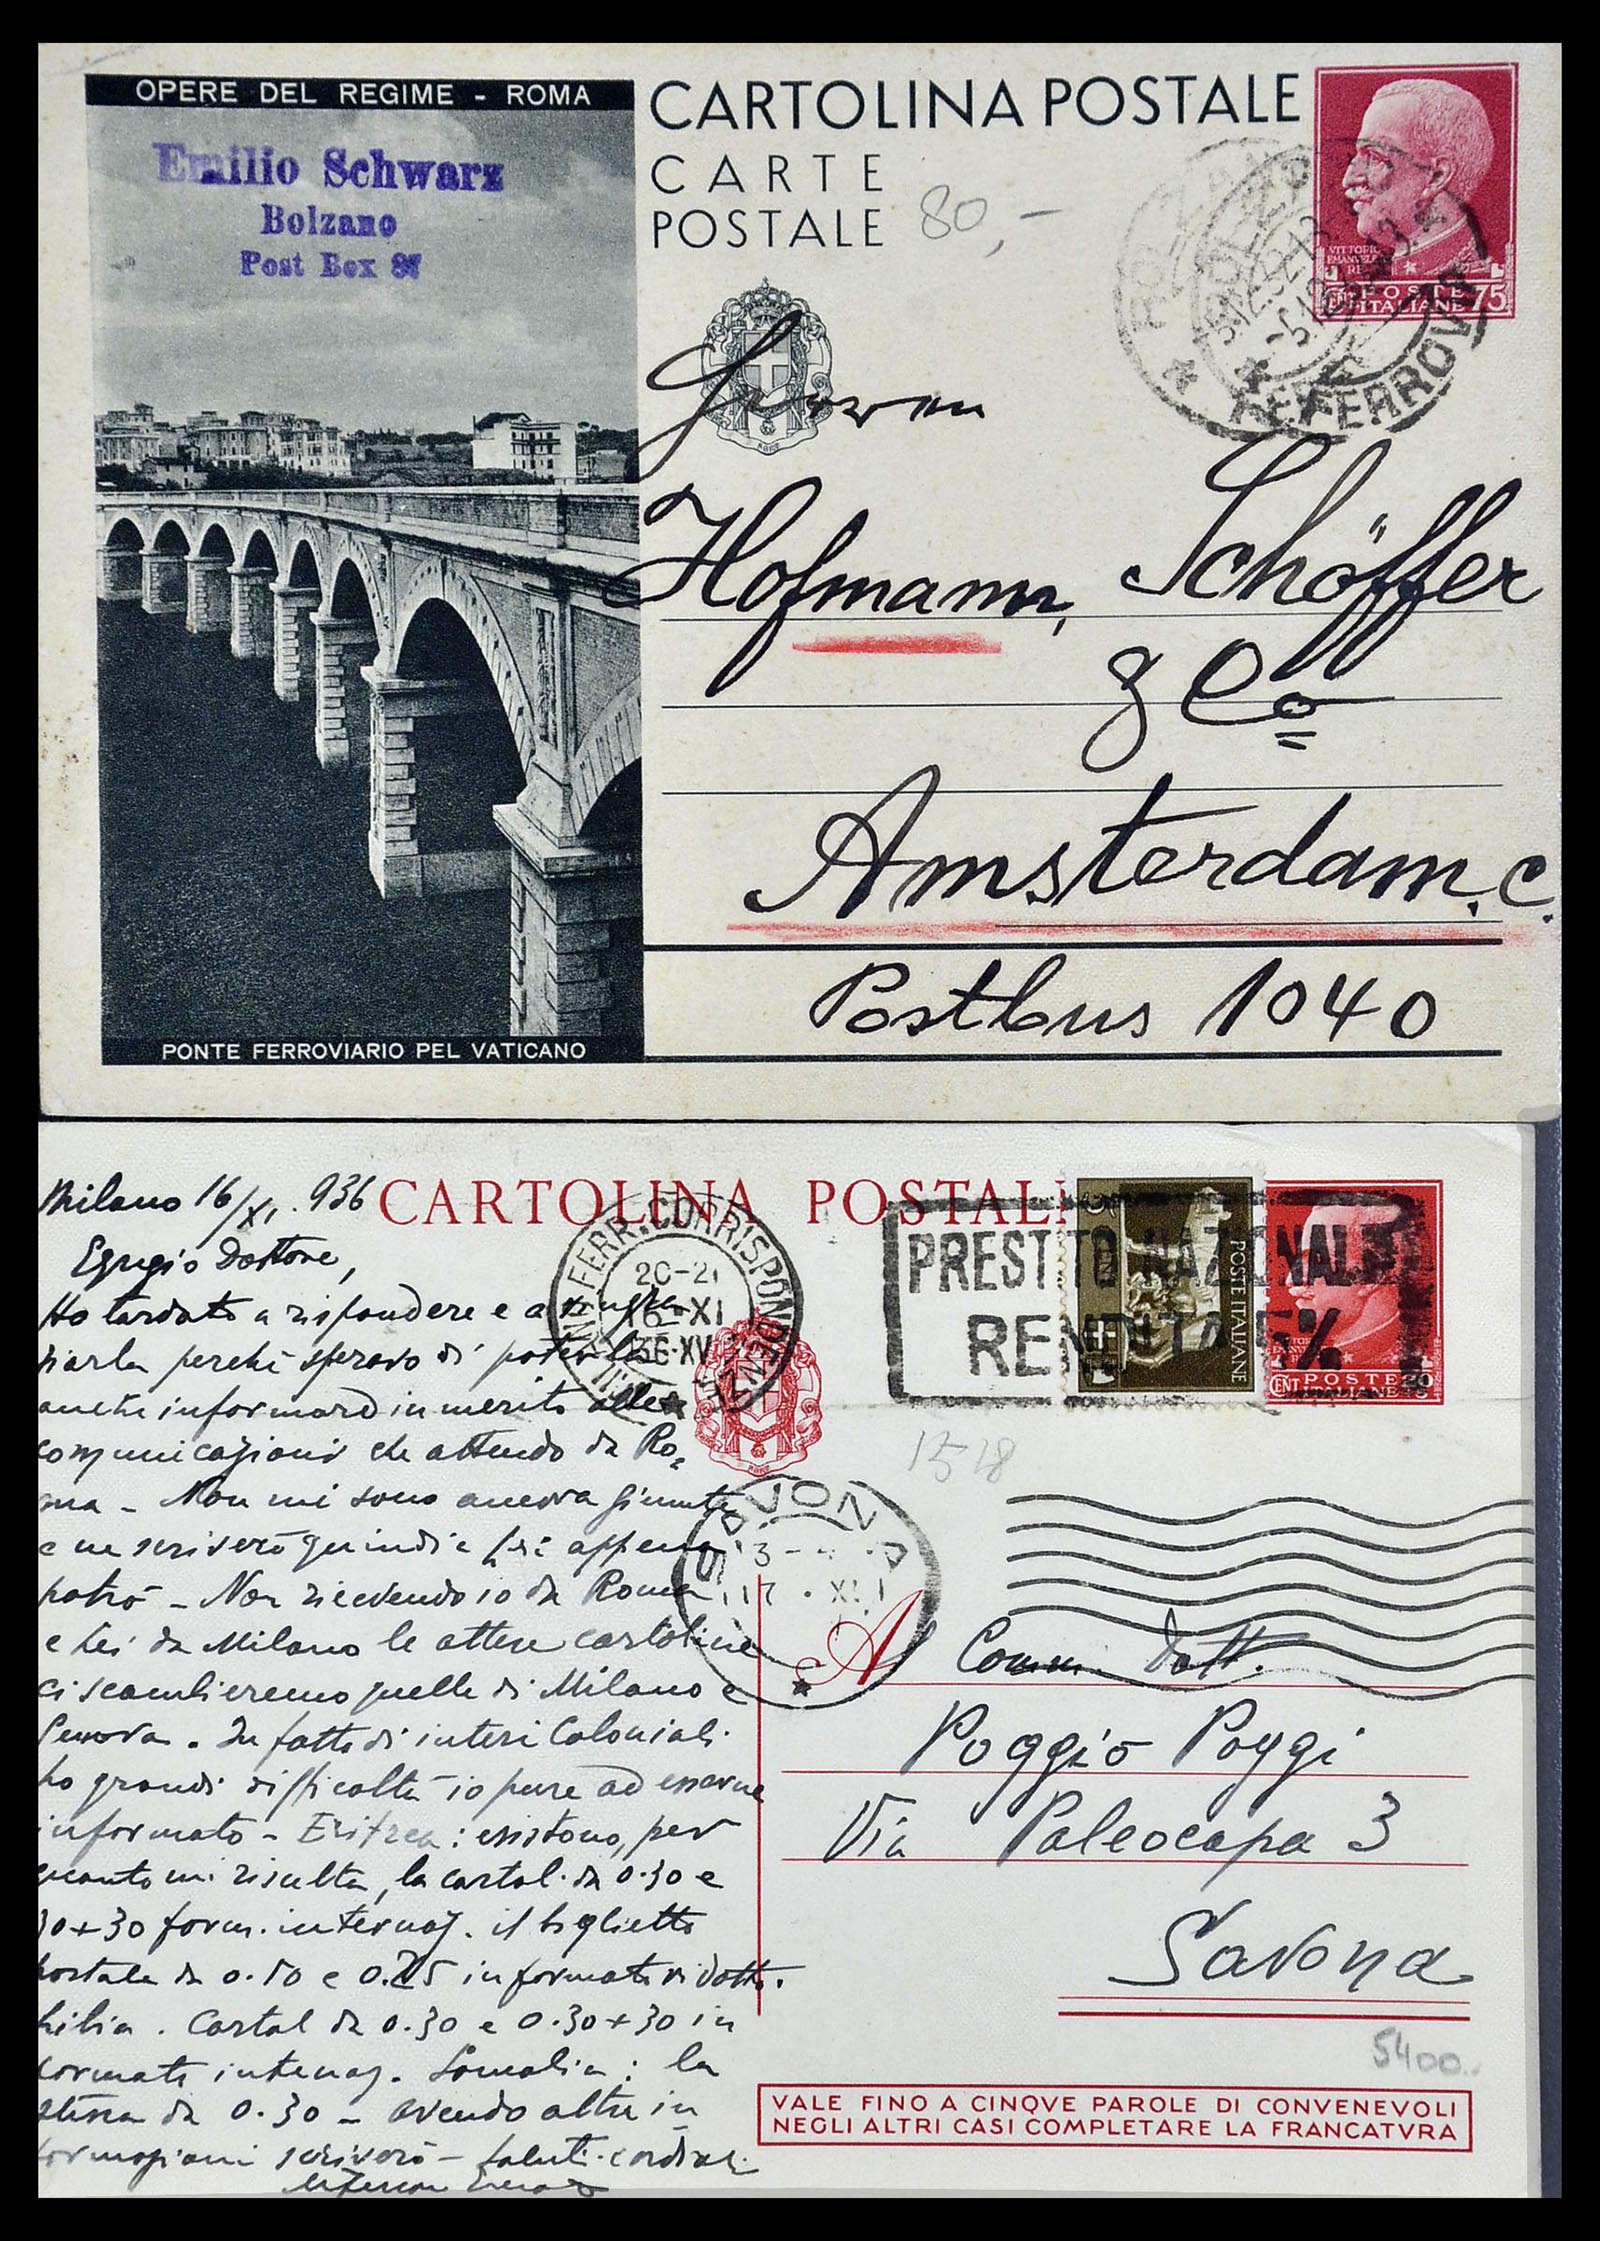 OPERE DEL REGIME - ROMA
Emilio Schwarz
Bolzano
Post Box 87
PONTE FERROVIARIO PEL VATICANO
CARTOLINA POSTALE
CARTE
POSTALE
80,-
VITTORIO
EMANUELE
RE
POSTE
ITALIANE 75
FERROVIA
Herren
Hofmann, Schöffer
& Co
Amsterdam. C.
Postbus 1040
Milano 16/XI. 936
CARTOLINA POSTALE
Egregio Dottore,
Ho tardato a rispondere e a
perchè speravo di poterla
anche informare in merito alle
comunicazioni che attendo da Ro-
ma - Non mi sono ancora giunte
e ne scriverò quindi a Lei appena
potrò - Non ricevendo io da Roma
e Lei da Milano le attese cartoline
ci scambieremo quelle di Milano e
Genova. In fatto di interi Coloniali
ho grandi difficoltà io pure ad esserne
informato - Eritrea: esistono, per
quanto mi risulta, la cartol. da 0.30 e
30+30 form. internaz. il biglietto
postale da 0.50 e 0.25 in formato ridotto.
Libia. Cartol da 0.30 e 0.30+30 in
formato internaz. Somalia: la
stessa da 0.30 - avendo altre in
formazioni scriverò - Saluti cordiali
FERR. CORRISPONDENZE
20-21
16-XI
36-XV
PRESTITO NAZIONALE
RENDITA 5%
5
POSTE ITALIANE
CENT POSTE
1518
SAVONA
17 . XI
A Comm. Dott.
Poggio Poggi
Via Paleocapa 3
Savona
5400..
VALE FINO A CINQVE PAROLE DI CONVENEVOLI
NEGLI ALTRI CASI COMPLETARE LA FRANCATVRA